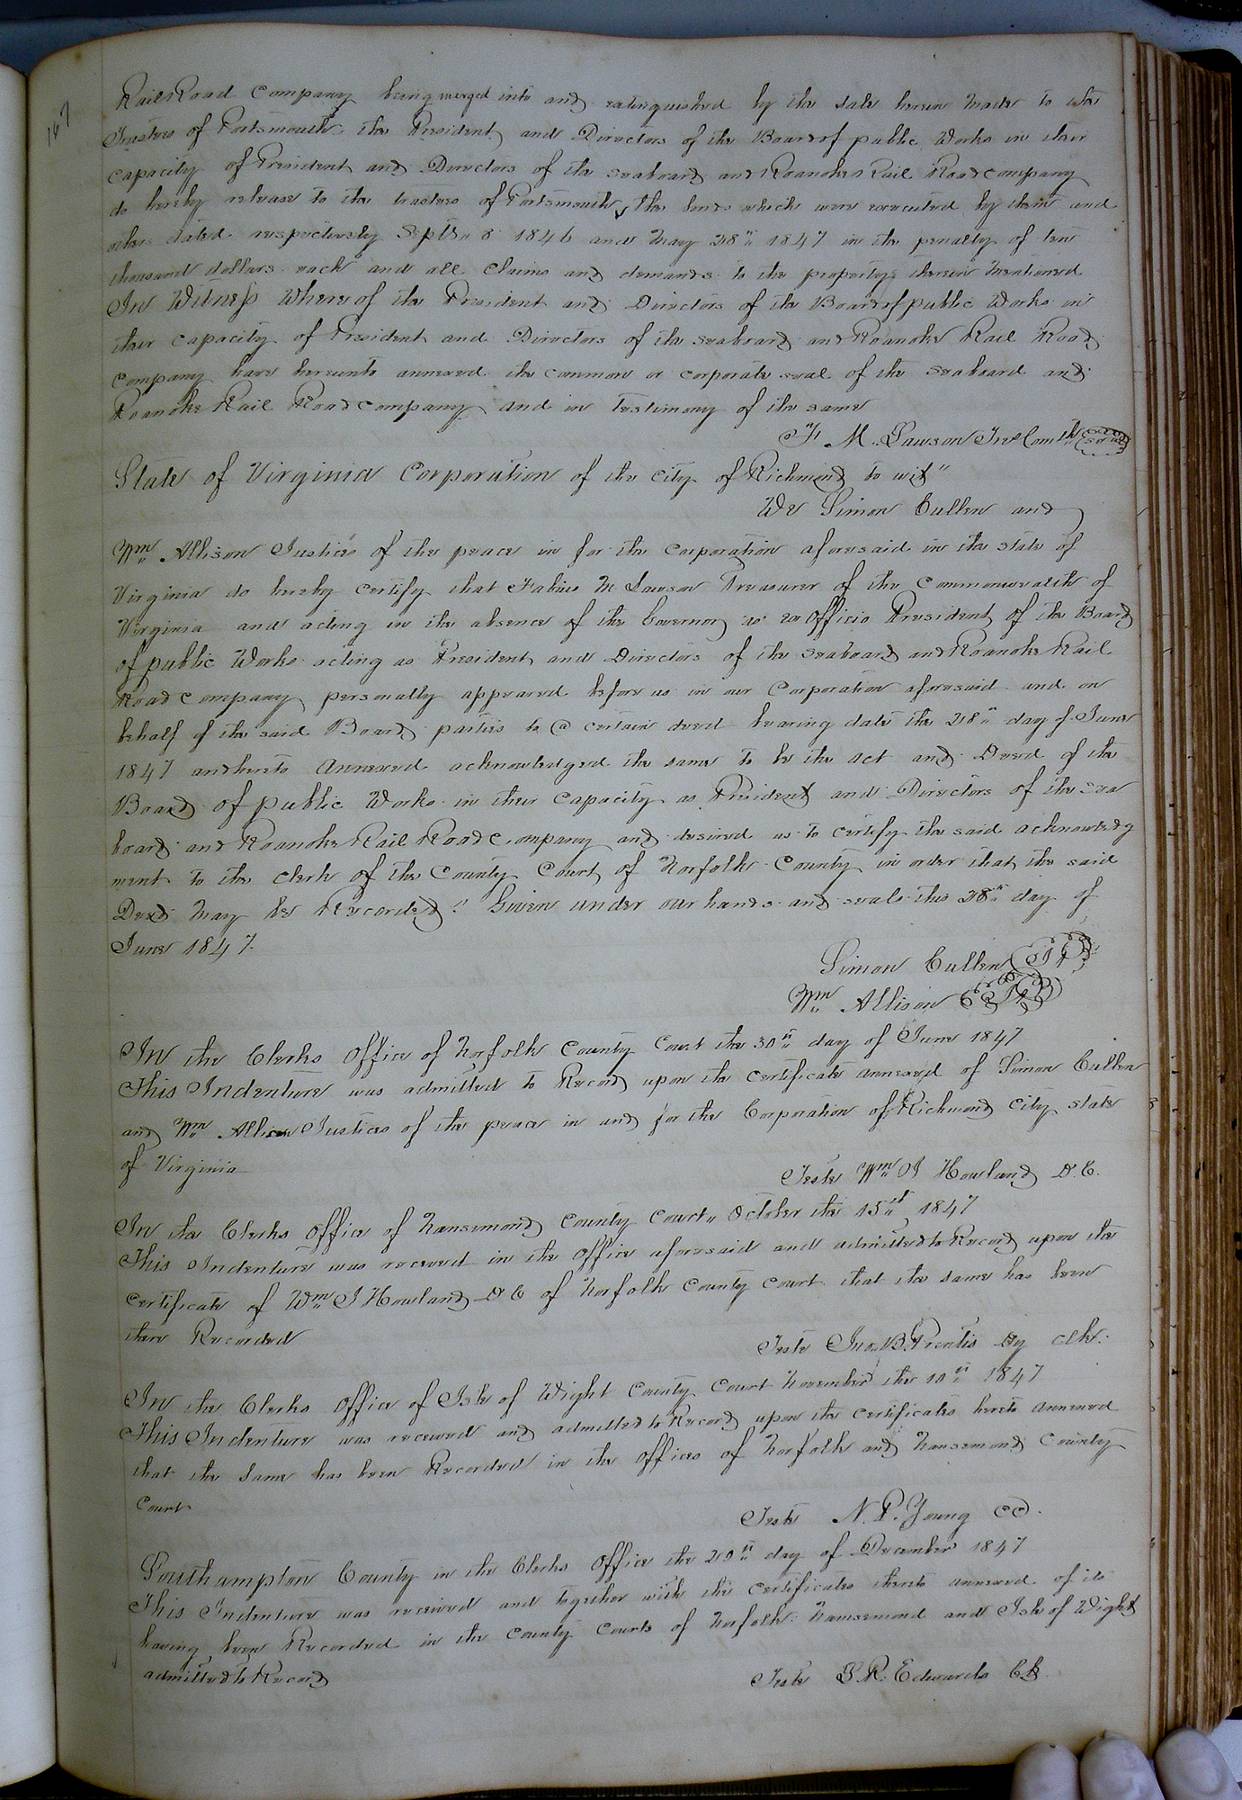 167
RailRoad Company being merged into and relinquished by the sale herein made to the
Trustees of Portsmouth the President and Directors of the Board of public Works in their
capacity of President and Directors of the seaboard and Roanoke Rail Road company
do hereby release to the trustees of Portsmouth, the bonds which were executed by them and
others dated respectively Septbr 8 1846 and May 28th 1847 in the penalty of ten
thousand dollars each and all claims and demands to the property therein mentioned
In Witness Whereof the President and Directors of the Board of public Works in
their capacity of President and Directors of the seaboard and Roanoke Rail Road
Company have hereunto annexed the common or corporate seal of the seaboard and
Roanoke Rail Road company and in Testimony of the same
F. M. Lawson Tre Comth seal
State of Virginia Corporation of the city of Richmond to wit"
We Simon Cullen and
Wm Allison Justices of the peace in for the corporation aforesaid in the state of
Virginia do hereby certify that Fabius M Lawson Treasurer of the Commonwealth of
Virginia and acting in the absence of the Governor as ex Officio President of the Board
of public Works acting as President and Directors of the seaboard and Roanoke Rail
Road company personally appeared before us in our Corporation aforesaid and on
behalf of the said Board parties to a certain deed bearing date the 28th day of June
1847 and hereto annexed acknowledged the same to be the act and Deed of the
Board of public Works in their capacity as President and Directors of the sea
board and Roanoke Rail Road Company and desired us to certify the said acknowledg
ment to the clerk of the County Court of Norfolk County in order that the said
Deed may be Recorded Given under our hands and seals this 28th day of
June 1847.
Simon Cullen JP
Wm Allison JP
In the Clerks Office of Norfolk County Court the 30th day of June 1847
This Indenture was admitted to Record upon the certificate annexed of Simon Cullen
and Wm Allison Justices of the peace in and for the Corporation of Richmond city state
of Virginia
Teste Wm J Howland D.C.
In the Clerks Office of Nansemond County Court October the 15th 1847
This Indenture was received in the Office aforesaid and admitted to Record upon the
certificate of Wm J Howland DC of Norfolk County court that the same has been
there Recorded
Teste Jno. B. Prentis Dy clk.
In the Clerks Office of Isle of Wight County Court November the 10th 1847
This Indenture was received and admitted to Record upon the certificates hereto annexed
that the same has been Recorded in the offices of Norfolk and Nansemond County
court
Teste N. P. Young CC.
Southampton County in the Clerks Office the 29th day of December 1847
This Indenture was received and together with the certificates thereto annexed of its
having been Recorded in the county courts of Norfolk Nansemond and Isle of Wight
admitted to Record
Teste L. R. Edwards Ck